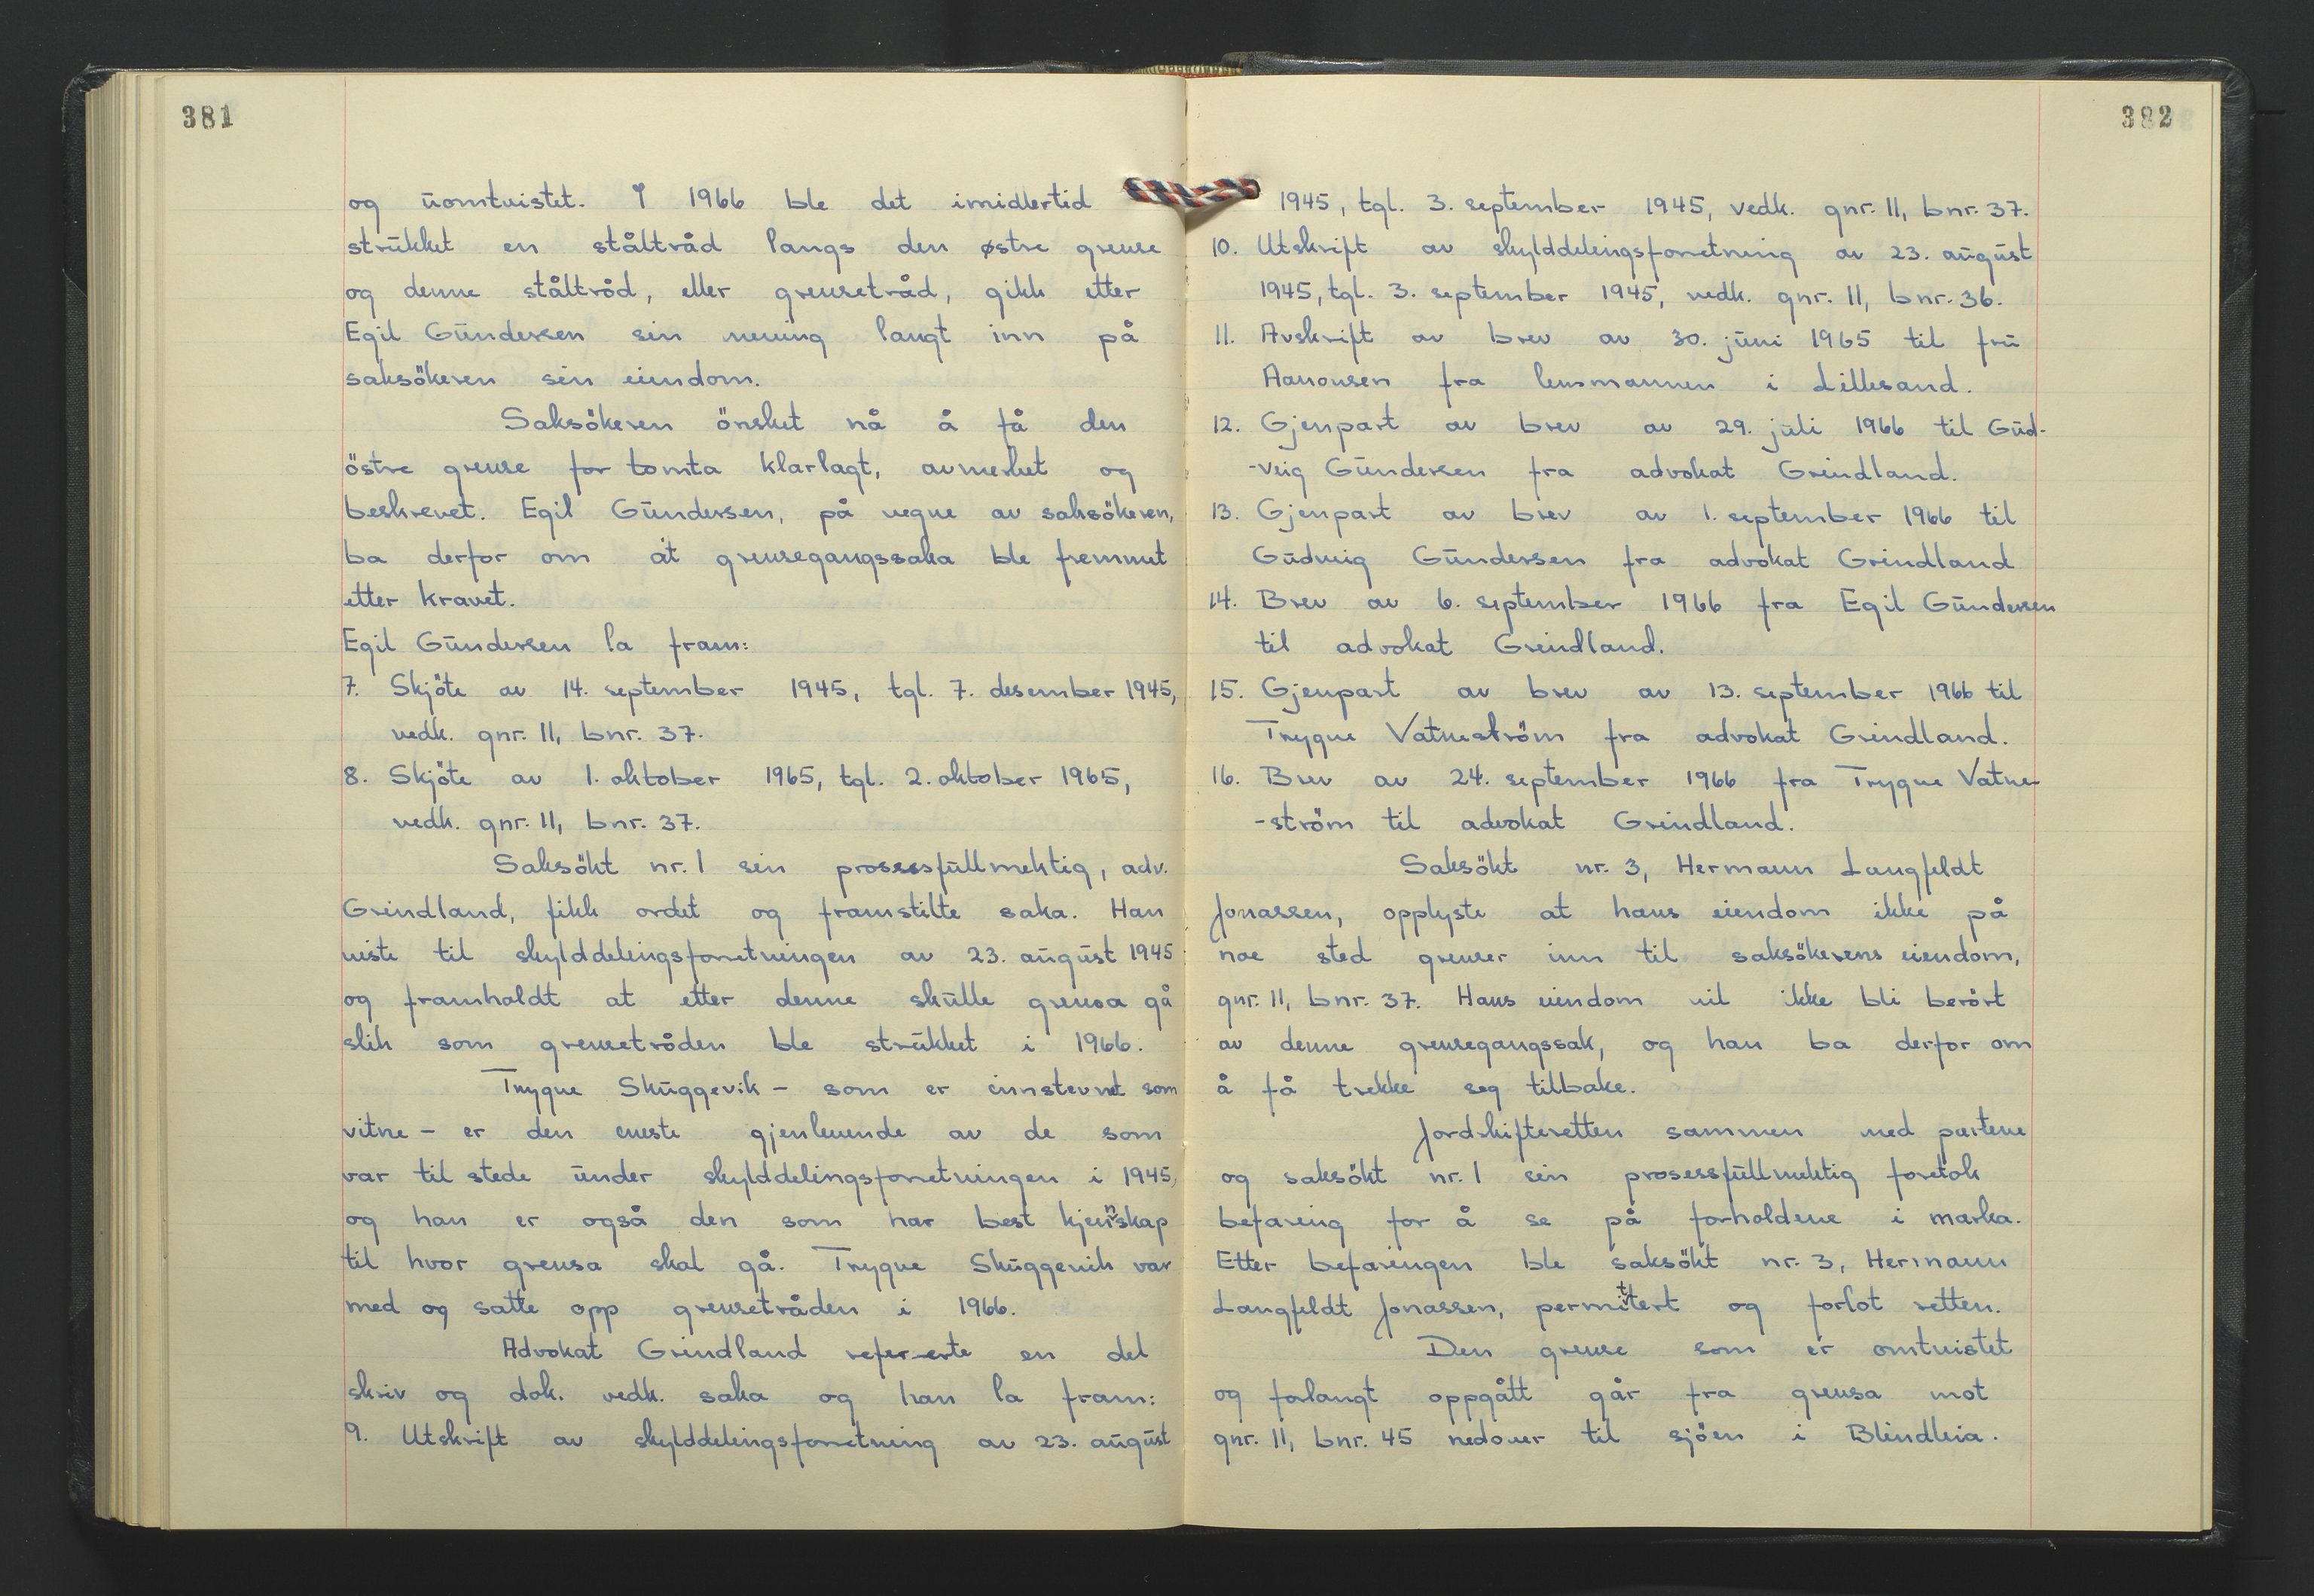 381
og uomtvistet. I 1966 ble det imidlertid
strukket en ståltråd langs den østre grense
og denne ståltråd, eller grensetråd, gikk etter
Egil Gundersen sin mening langt inn på
saksökeren sin eiendom.
Saksökeren önsket nå å få den
östre grense for tomta klarlagt, avmerket og
beskrevet. Egil Gundersen, på vegne av saksökeren,
ba derfor om at grensegangssaka ble fremmet
etter kravet.
Egil Gundersen la fram:
7. Skjöte av 14. september 1945, tgl. 7. desember 1945,
vedk. gnr. 11, bnr. 37.
8. Skjöte av 1. oktober 1965, tgl. 2. oktober 1965,
vedk. gnr. 11, bnr. 37.
Saksökt nr. 1 sin prosessfullmektig, adv.
Grindland, fikk ordet og framstilte saka. Han
viste til skylddelingsforretningen av 23. august 1945
og framholdt at etter denne skulle grensa gå
slik som grensetråden ble strukket i 1966.
Trygve Skuggevik - som er innstevnet som
vitne - er den eneste gjenlevende av de som
var til stede under skylddelingsforretningen i 1945,
og han er også den som har best kjennskap
til hvor grensa skal gå. Trygve Skuggevik var
med og satte opp grensetråden i 1966.
Advokat Grindland refererte en del
skriv og dok. vedk. saka og han la fram:
9. Utskrift av skylddelingsforretning av 23. august
382
1945, tgl. 3. september 1945, vedk. gnr. 11, bnr. 37.
10. Utskrift av skylddelingsforretning av 23. august
1945, tgl. 3. september 1945, vedk. gnr. 11, bnr. 36.
11. Avskrift av brev av 30. juni 1965 til fru
Aanonsen fra lensmannen i Lillesand.
12. Gjenpart av brev av 29. juli 1966 til Gud-
-veig Gundersen fra advokat Grindland.
13. Gjenpart av brev av 1. september 1966 til
Gudveig Gundersen fra advokat Grindland
14. Brev av 6. september 1966 fra Egil Gundersen
til advokat Grindland.
15. Gjenpart av brev av 13. september 1966 til
Trygve Vatneström fra advokat Grindland.
16. Brev av 24. september 1966 fra Trygve Vatne-
-ström til advokat Grindland.
Saksökt nr. 3, Hermann Langfeldt
Jonassen, opplyste at hans eiendom ikke på
noe sted grenser inn til saksökerens eiendom,
gnr. 11, bnr. 37. Hans eiendom vil ikke bli berört
av denne grensegangssak, og han ba derfor om
å få trekke seg tilbake.
Jordskifteretten sammen med partene
og saksökt nr. 1 sin prosessfullmektig foretok
befaring for å se på forholdene i marka.
Etter befaringen ble saksökt nr. 3, Hermann
Langfeldt Jonassen, permittert og forlot retten.
Den grense som er omtvistet
og forlangt oppgått går fra grensa mot
gnr. 11, bnr. 45 nedover til sjöen i Blindleia.